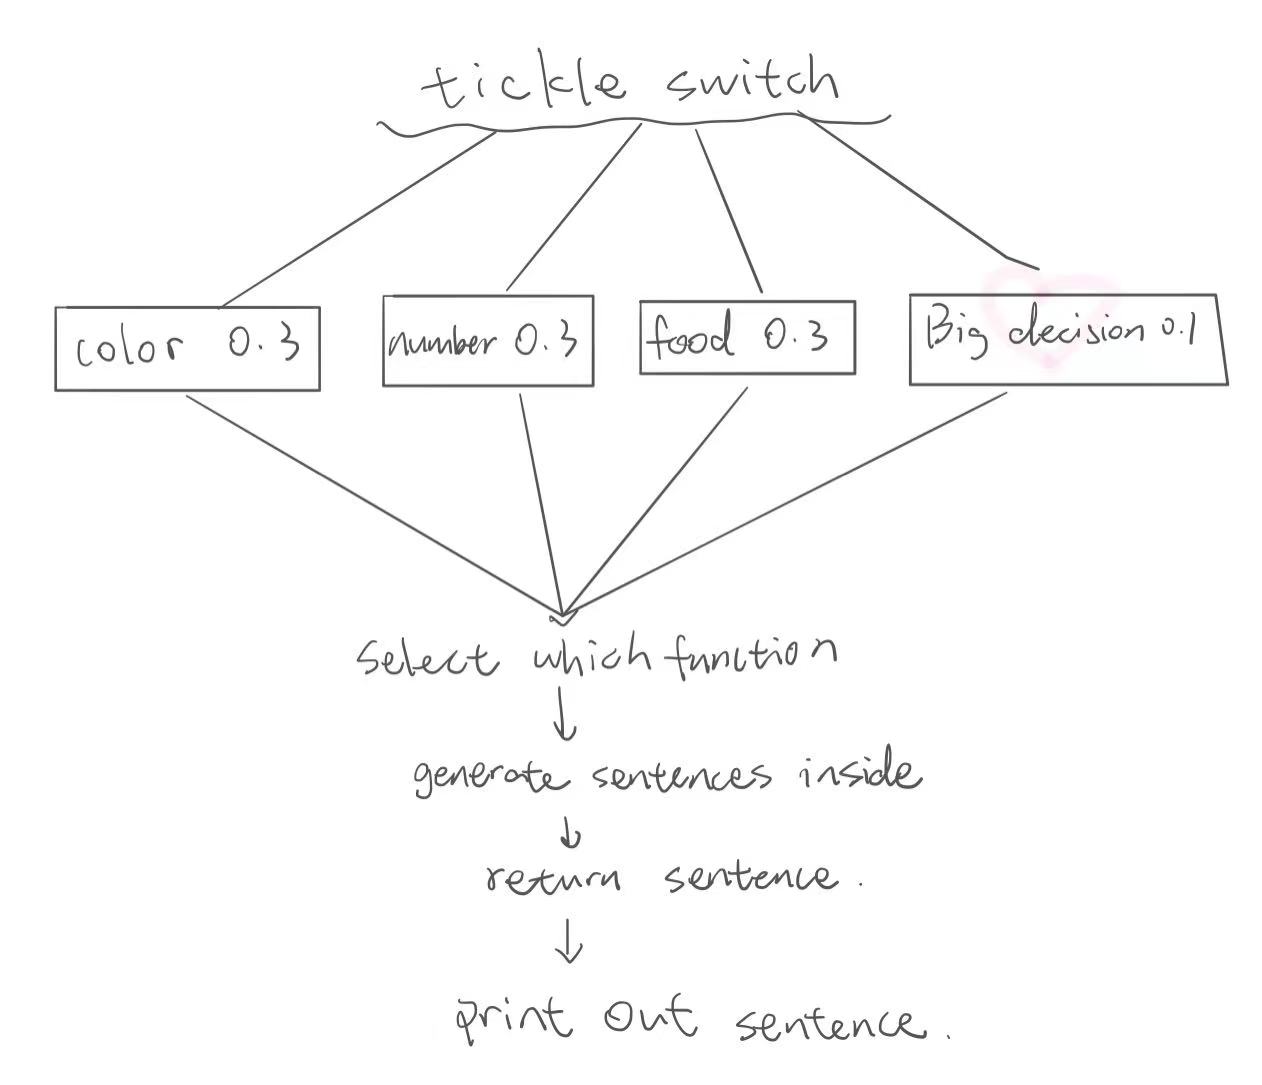 tickle switch
color 0.3
number 0.3
food 0.3
Big decision 0.1
select which function
generate sentences inside
return sentence.
print out sentence.